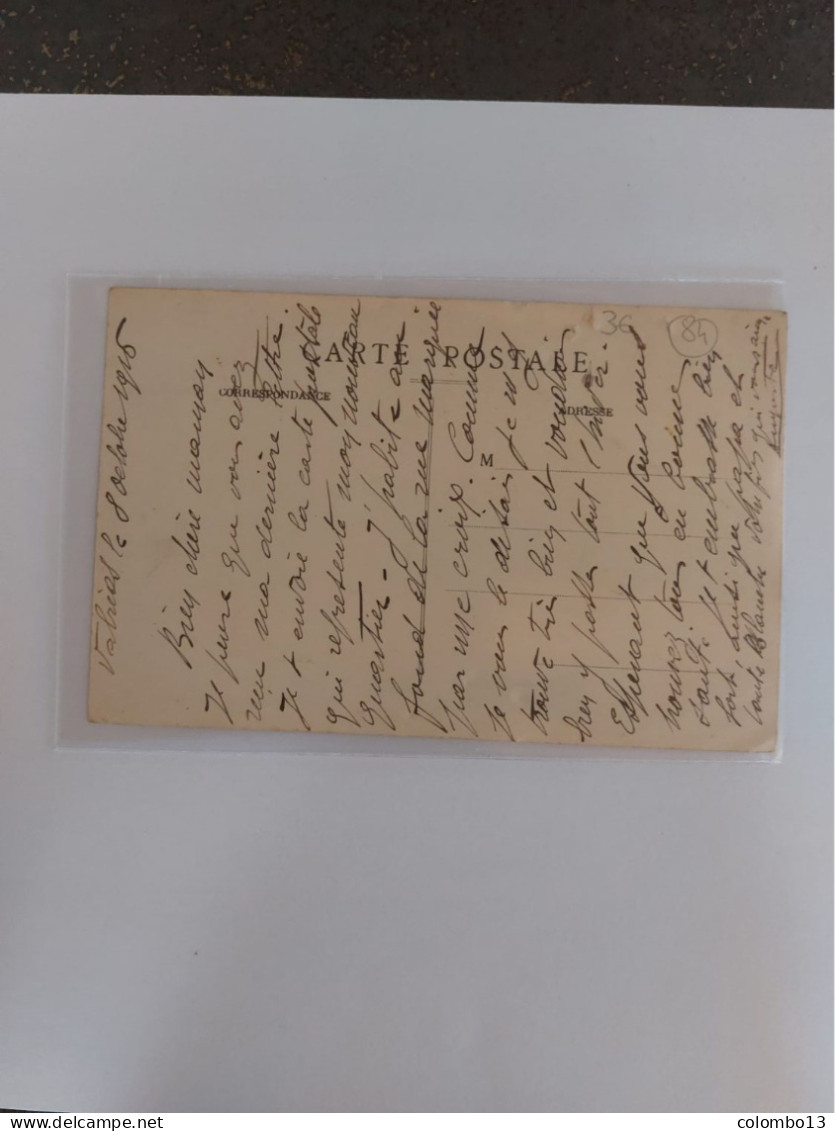 Valréas le 8 Octobre 1915
Bien chère maman
Je pense que vous avez
ma dernière lettre.
Je t envoie la carte postale
qui représente mon nouveau
quartier - J'habite au
fond de la rue marquée
par une croix. Comme
je vous le disais je m'y
trouve très bien et voudrais
bien y passer tout l'hiver.
Espérant que vous vous
trouvez tous en bonne
santé je t embrasse bien
fort, ainsi que papa et
tante Blanche votre fils qui vous aime
CARTE POSTALE
CORRESPONDANCE
ADRESSE
M
36
84
delcampe.net
colombo13